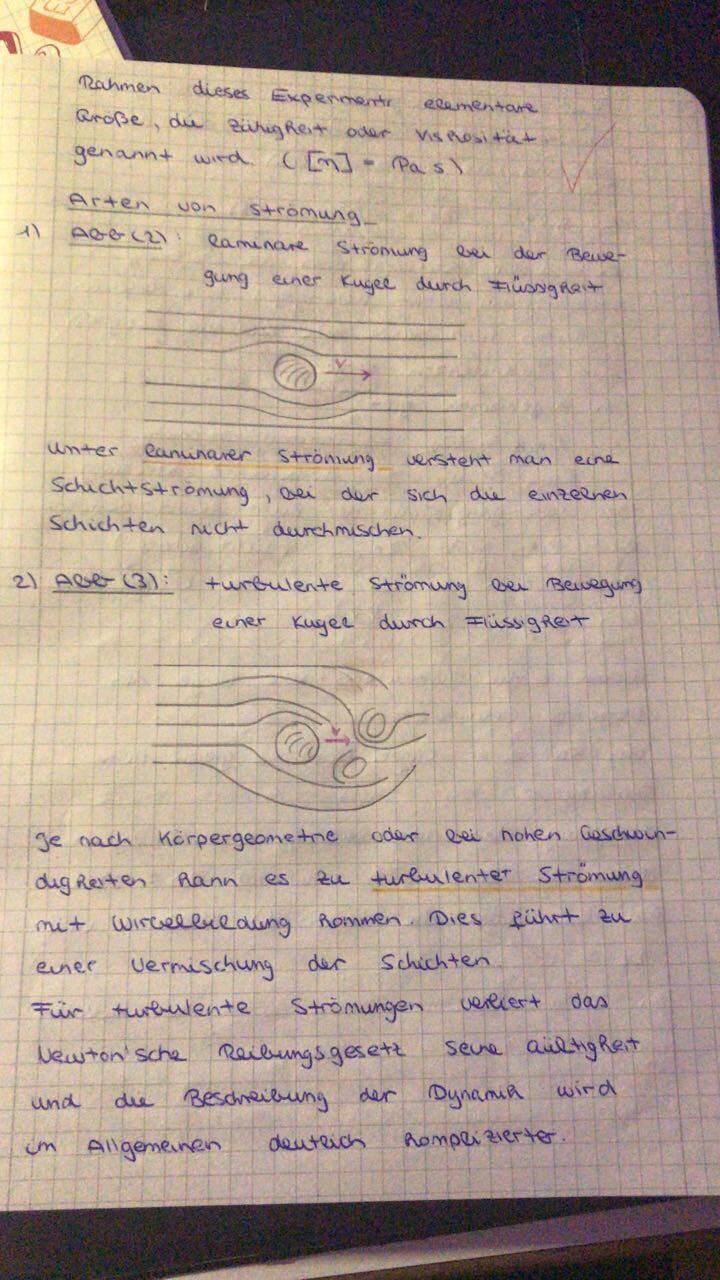 Rahmen dieses Experiments elementare
Größe, die Zähigkeit oder Viskosität
genannt wird. ([η] = Pa s)
Arten von Strömung
1) Abb (2): laminare Strömung bei der Bewe-
gung einer Kugel durch Flüssigkeit
v
Unter laminarer Strömung versteht man eine
Schichtströmung, bei der sich die einzelnen
Schichten nicht durchmischen.
2) Abb (3): turbulente Strömung bei Bewegung
einer Kugel durch Flüssigkeit
v
Je nach Körpergeometrie oder bei hohen Geschwin-
digkeiten kann es zu turbulenter Strömung
mit Wirbelbildung kommen. Dies führt zu
einer Vermischung der Schichten
Für turbulente Strömungen verliert das
Newton'sche Reibungsgesetz seine Gültigkeit
und die Beschreibung der Dynamik wird
im Allgemeinen deutlich komplizierter.